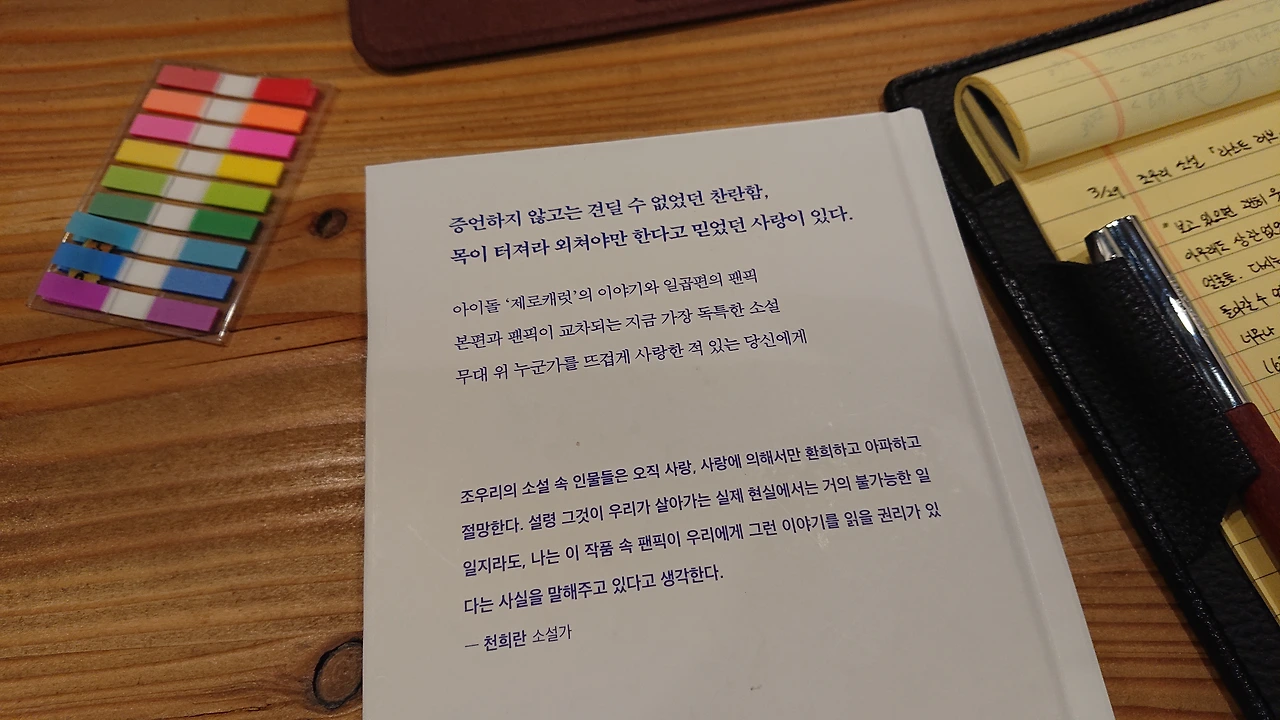 증언하지 않고는 견딜 수 없었던 찬란함,
목이 터져라 외쳐야만 한다고 믿었던 사랑이 있다.
아이돌 ‘제로캐럿’의 이야기와 일곱편의 팬픽
본편과 팬픽이 교차되는 지금 가장 독특한 소설
무대 위 누군가를 뜨겁게 사랑한 적 있는 당신에게
조우리의 소설 속 인물들은 오직 사랑, 사랑에 의해서만 환희하고 아파하고
절망한다. 설령 그것이 우리가 살아가는 실제 현실에서는 거의 불가능한 일
일지라도, 나는 이 작품 속 팬픽이 우리에게 그런 이야기를 읽을 권리가 있
다는 사실을 말해주고 있다고 생각한다.
— 천희란 소설가
3/29 조우리 소설 「라스트 러브
"보고 있으면 괜히
아무래도 상관없
얼굴들. 다시는
돌아갈 수
너무나